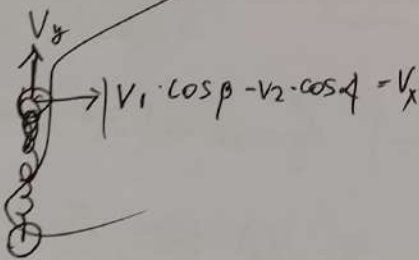 Vy
|V₁·cosβ - V₂·cos∠ = Vx